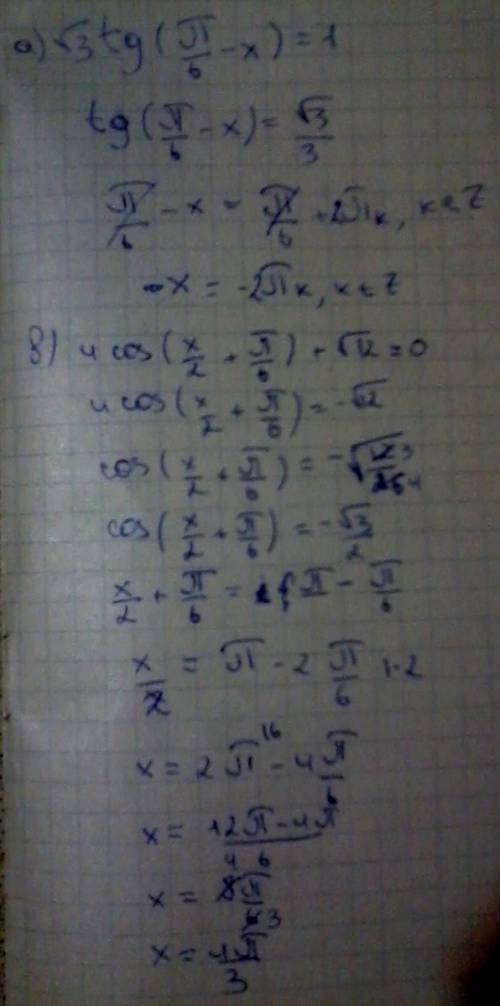 а) √3 tg(π/6 - x) = 1
tg(π/6 - x) = √3/3
π/6 - x = π/6 + 2πк, к ∈ Z
x = -2πк, к ∈ Z
в) 4 cos(x/2 + π/6) + √12 = 0
4 cos(x/2 + π/6) = -√12
cos(x/2 + π/6) = -√12/16
cos(x/2 + π/6) = -√3/2
x/2 + π/6 = π - π/6
x/2 = π - 2 π/6 |·2
x = 2π - 4π/6
x = 12π - 4π/6
x = 8π/6
x = 4π/3